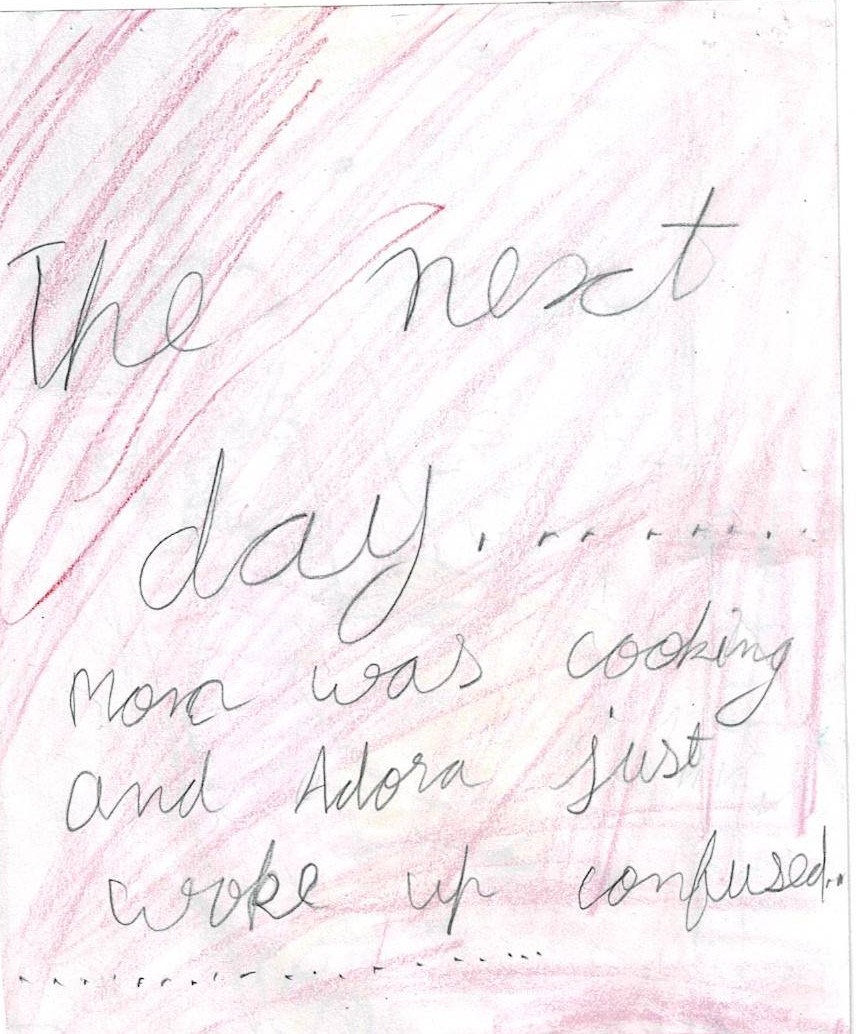 The next
day. . . . . . . . .
Mom was cooking
and Adora just
woke up confused..
. . . . . . . . . . . . . . . . . . . .